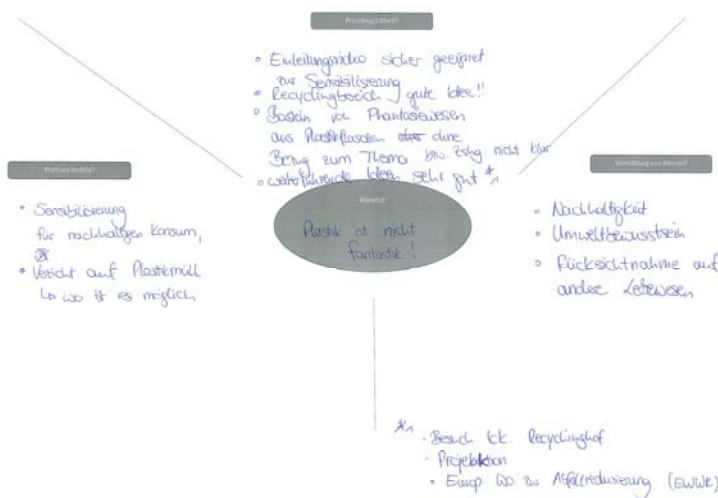 Praxistauglichkeit?
• Einleitungsvideo sicher geeignet
zur Sensibilisierung
• Recyclingbereich gute Idee!!
• Basteln von Phantasiewesen
aus Plastikflaschen ohne
Bezug zum Thema bzw. Zshg. nicht klar
• weiterführende Ideen sehr gut *1
Positives Vorbild?
• Sensibilisierung
für nachhaltigen Konsum,
• Verzicht auf Plastikmüll
↳ wo ist es möglich
Material:
Plastik ist nicht
fantastik!
Vermittlung von Werten?
• Nachhaltigkeit
• Umweltbewusstsein
• Rücksichtnahme auf
andere Lebewesen
*1
• Besuch Recyclinghof
• Projektaktion
• Europ. Wo. zur Abfallreduzierung (EWWR)